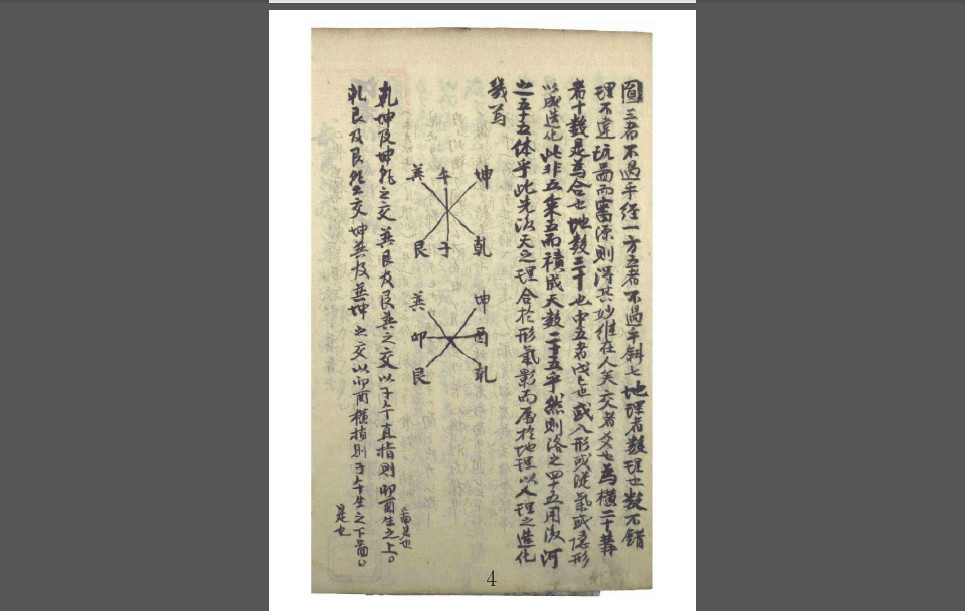 圓三者不過乎經一方五者不過乎斜七地理者數理也數不錯
理不違玩啚而窮源則得其妙惟在人矣交者爻也為橫二十冓
者十數是為合也地數三十也中五者戊己也或入形或從氣或隱形
以成造化此非五乘五而積成天數二十五乎然則洛之四十五用後河
之五十五体乎此先後天之理合於形氣影而屬於地理以人理之造化
幾焉
巽 午 坤
艮 子 乾
巽 坤
卯 酉
艮 乾
乾坤及坤乾之交巽艮及艮巽之交以子午直指則卯酉生之上啚是也
乾艮及艮乾之交坤巽及巽坤之交以卯酉橫指則子午生之下啚是也
4